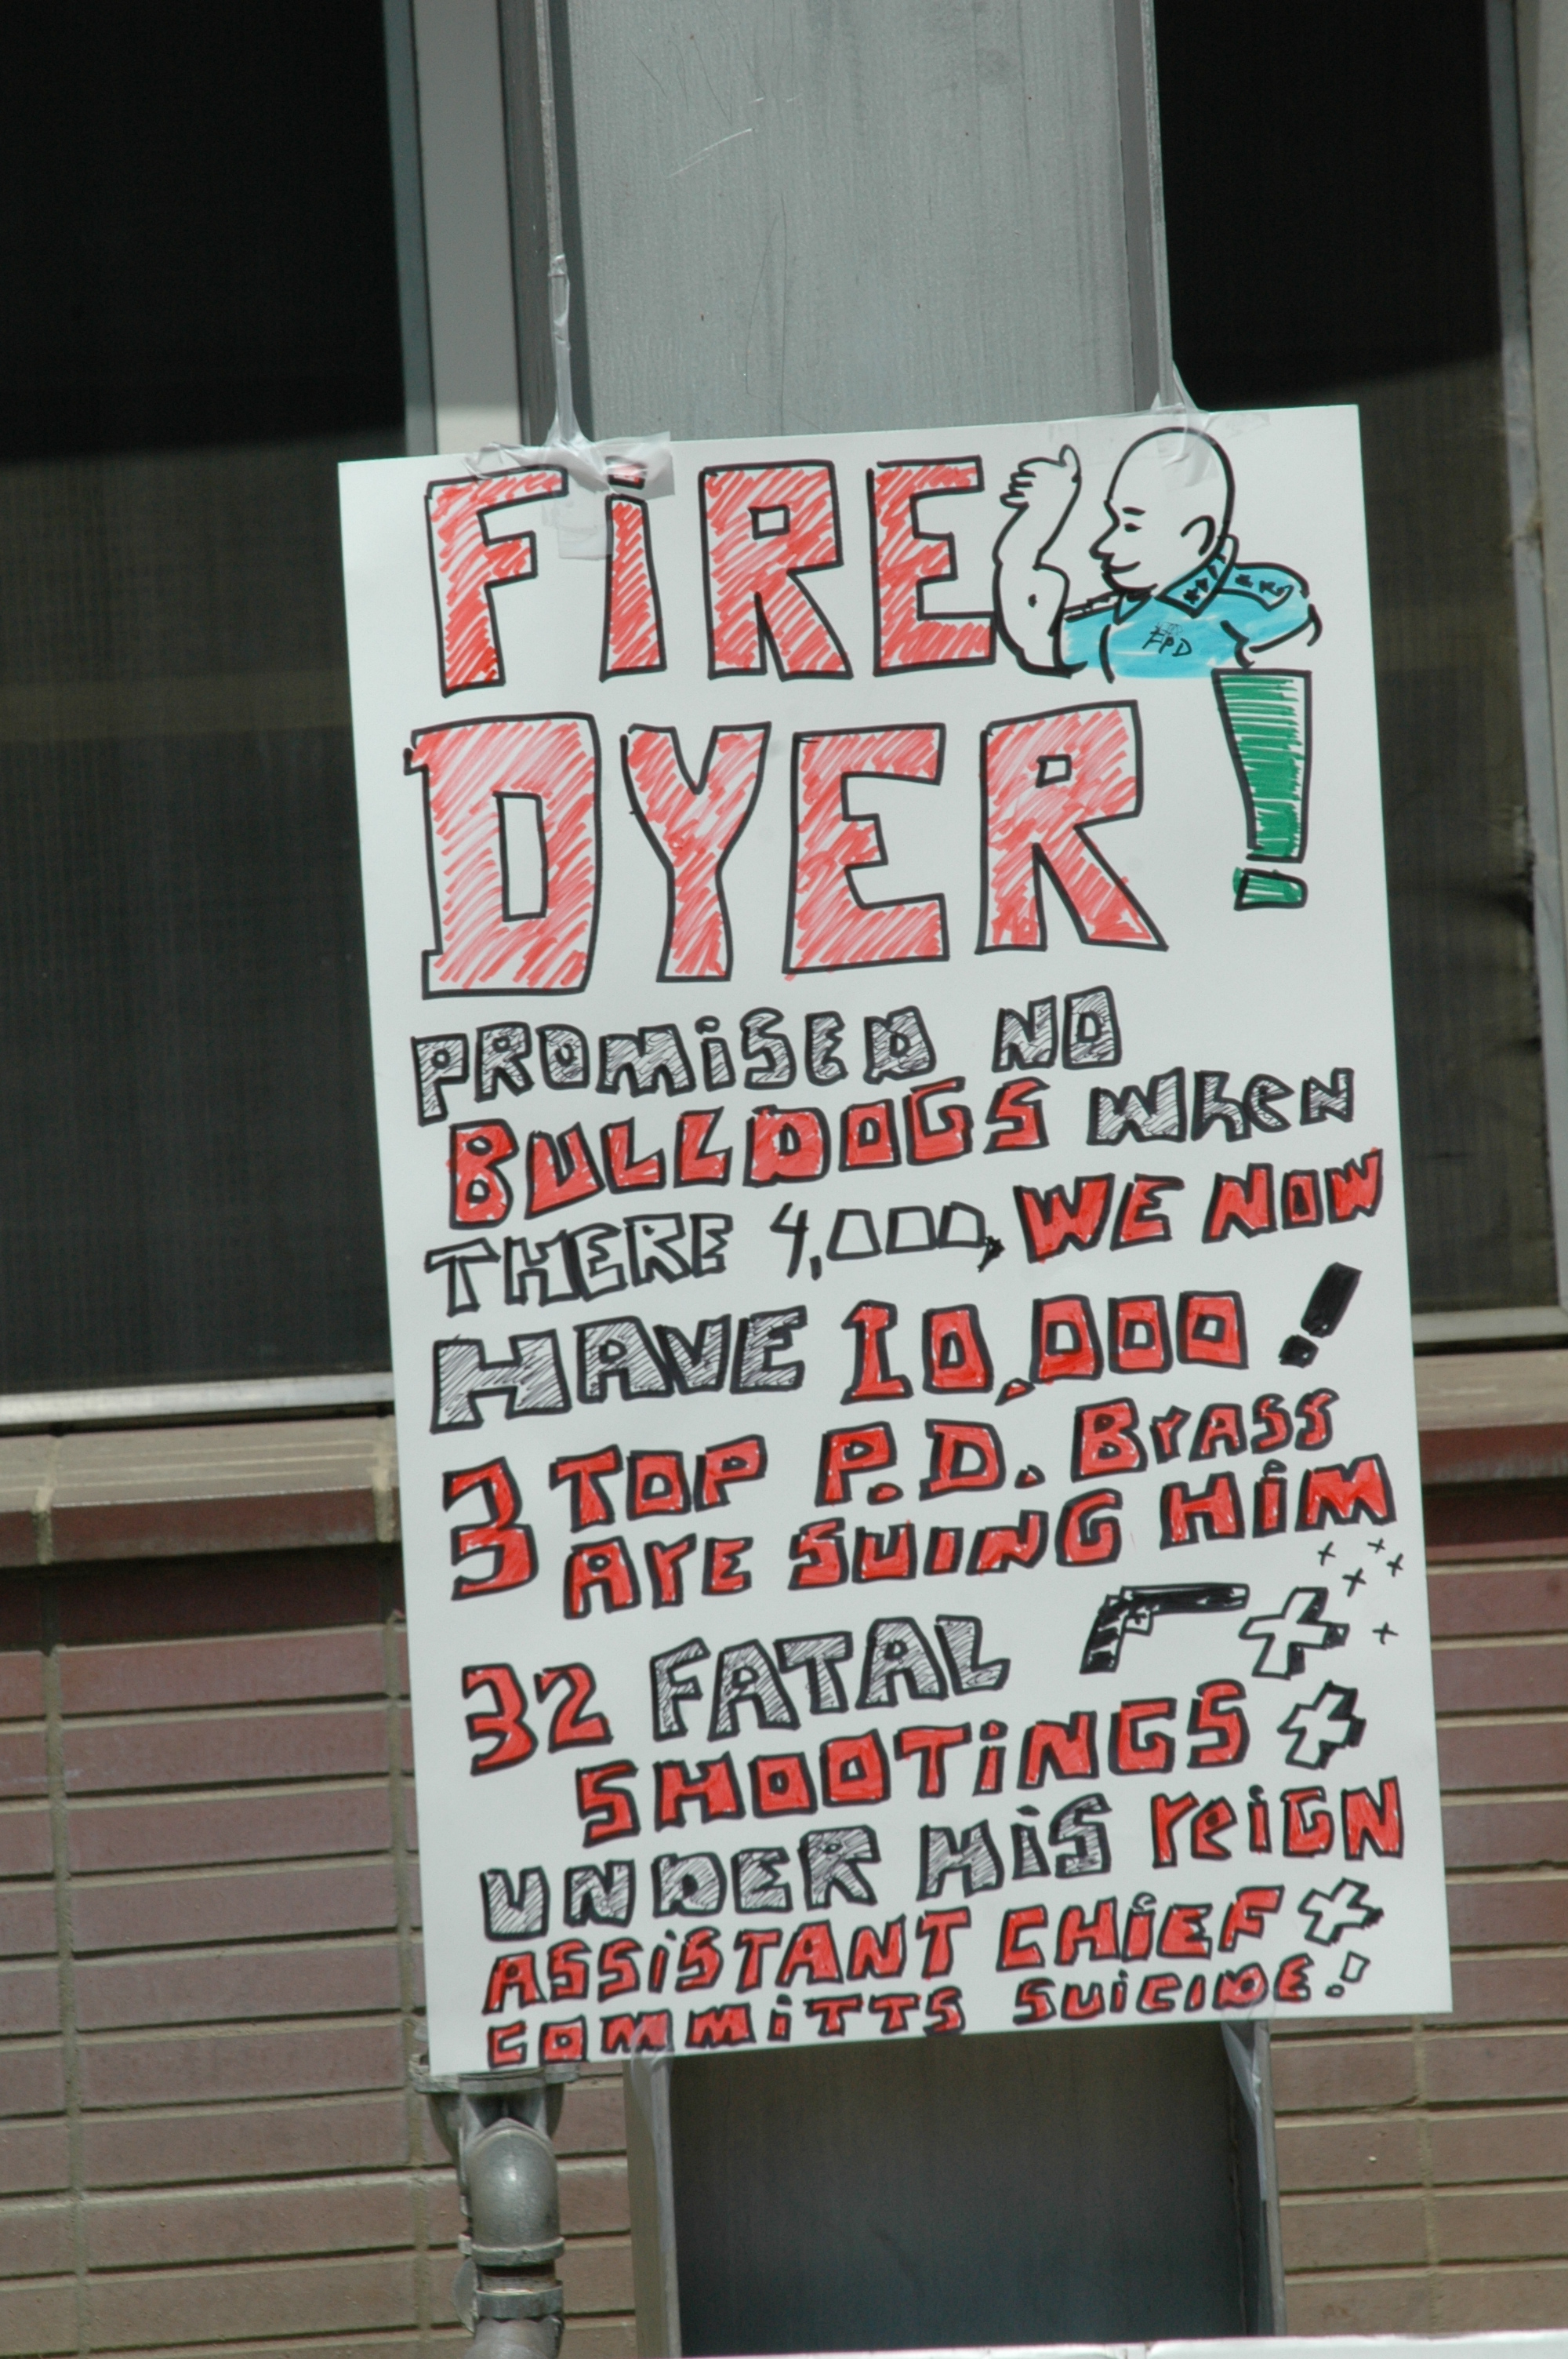 FiRE
FPD
DYER!
PROMiSED NO
BULLDOGS WheN
THERE 4,000, WE NOW
HAVE 10,000!
3 TOP P.D. BrASS
ArE SUING HiM
32 FATAL
SHOOTiNGS
UNDER HiS reiGN
ASSiSTANT CHiEF
COMMiTTS SUiCIDE!